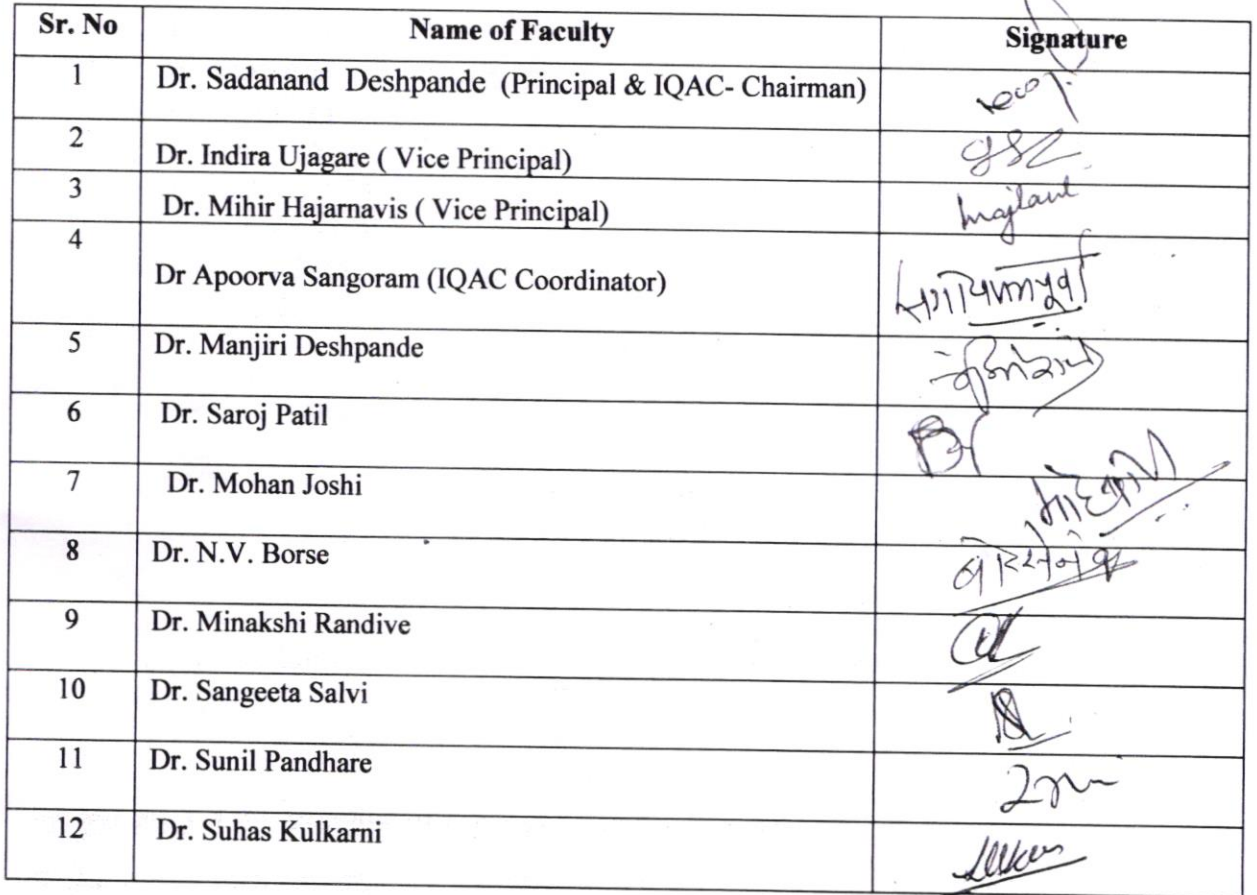 Sr. No Name of Faculty Signature
1 Dr. Sadanand Deshpande (Principal & IQAC- Chairman)
2 Dr. Indira Ujagare ( Vice Principal)
3 Dr. Mihir Hajarnavis ( Vice Principal)
4 Dr Apoorva Sangoram (IQAC Coordinator)
5 Dr. Manjiri Deshpande
6 Dr. Saroj Patil
7 Dr. Mohan Joshi
8 Dr. N.V. Borse
9 Dr. Minakshi Randive
10 Dr. Sangeeta Salvi
11 Dr. Sunil Pandhare
12 Dr. Suhas Kulkarni